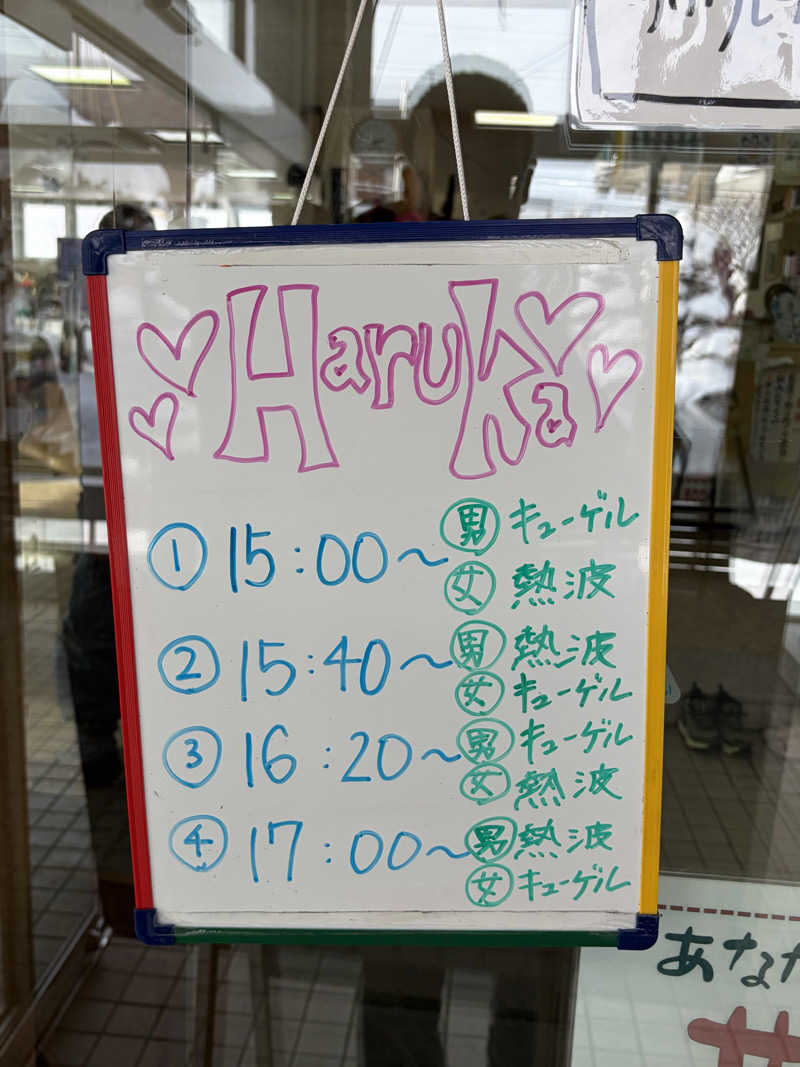 Haruka
① 15:00〜 男 キューゲル
女 熱波
② 15:40〜 男 熱波
女 キューゲル
③ 16:20〜 男 キューゲル
女 熱波
④ 17:00〜 男 熱波
女 キューゲル
あなた